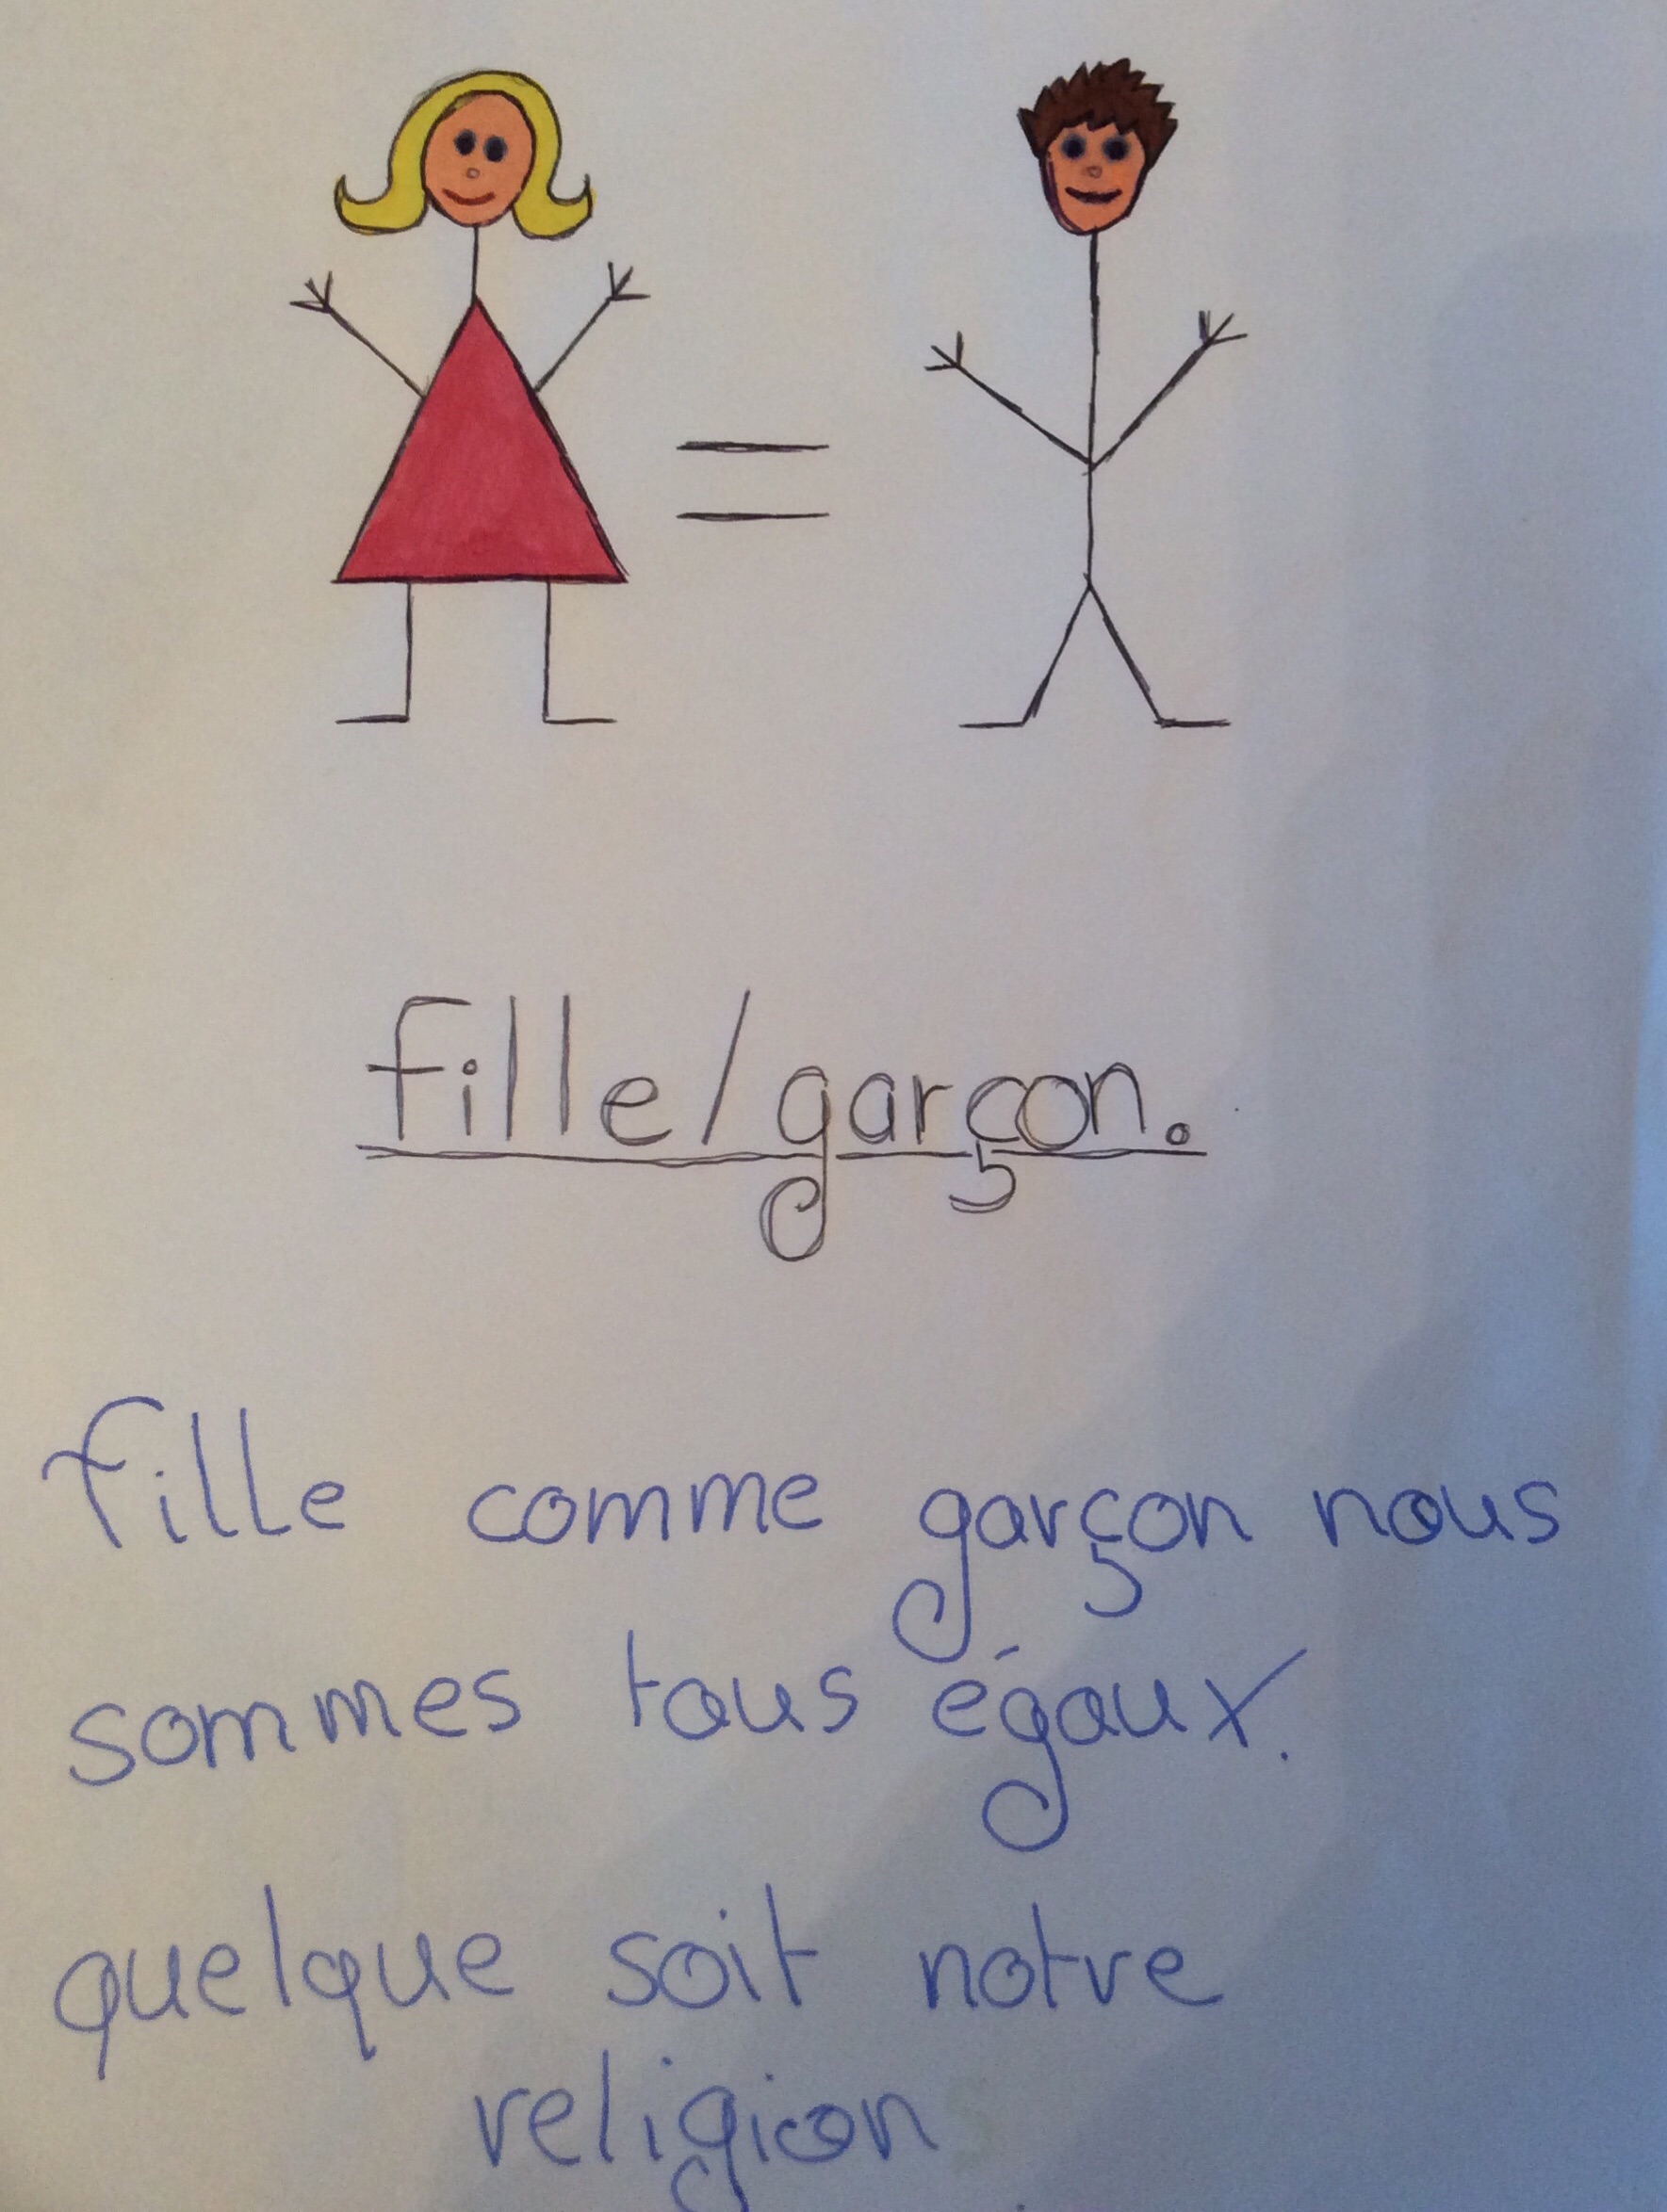 fille/garçon.
Fille comme garçon nous
sommes tous égaux.
quelque soit notre
religion